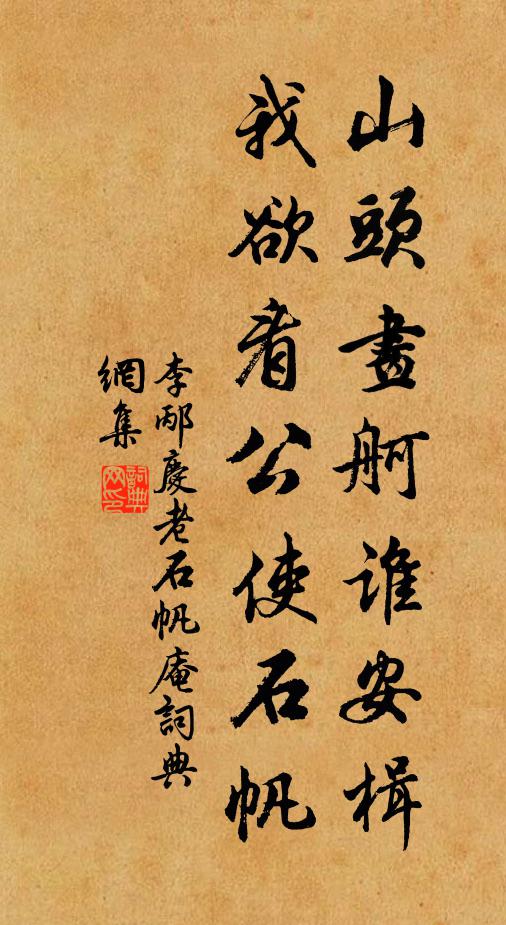 山頭畫舸誰安楫
我欲看公使石帆
李邴慶老石帆庵詞典
網集
詞典
网印